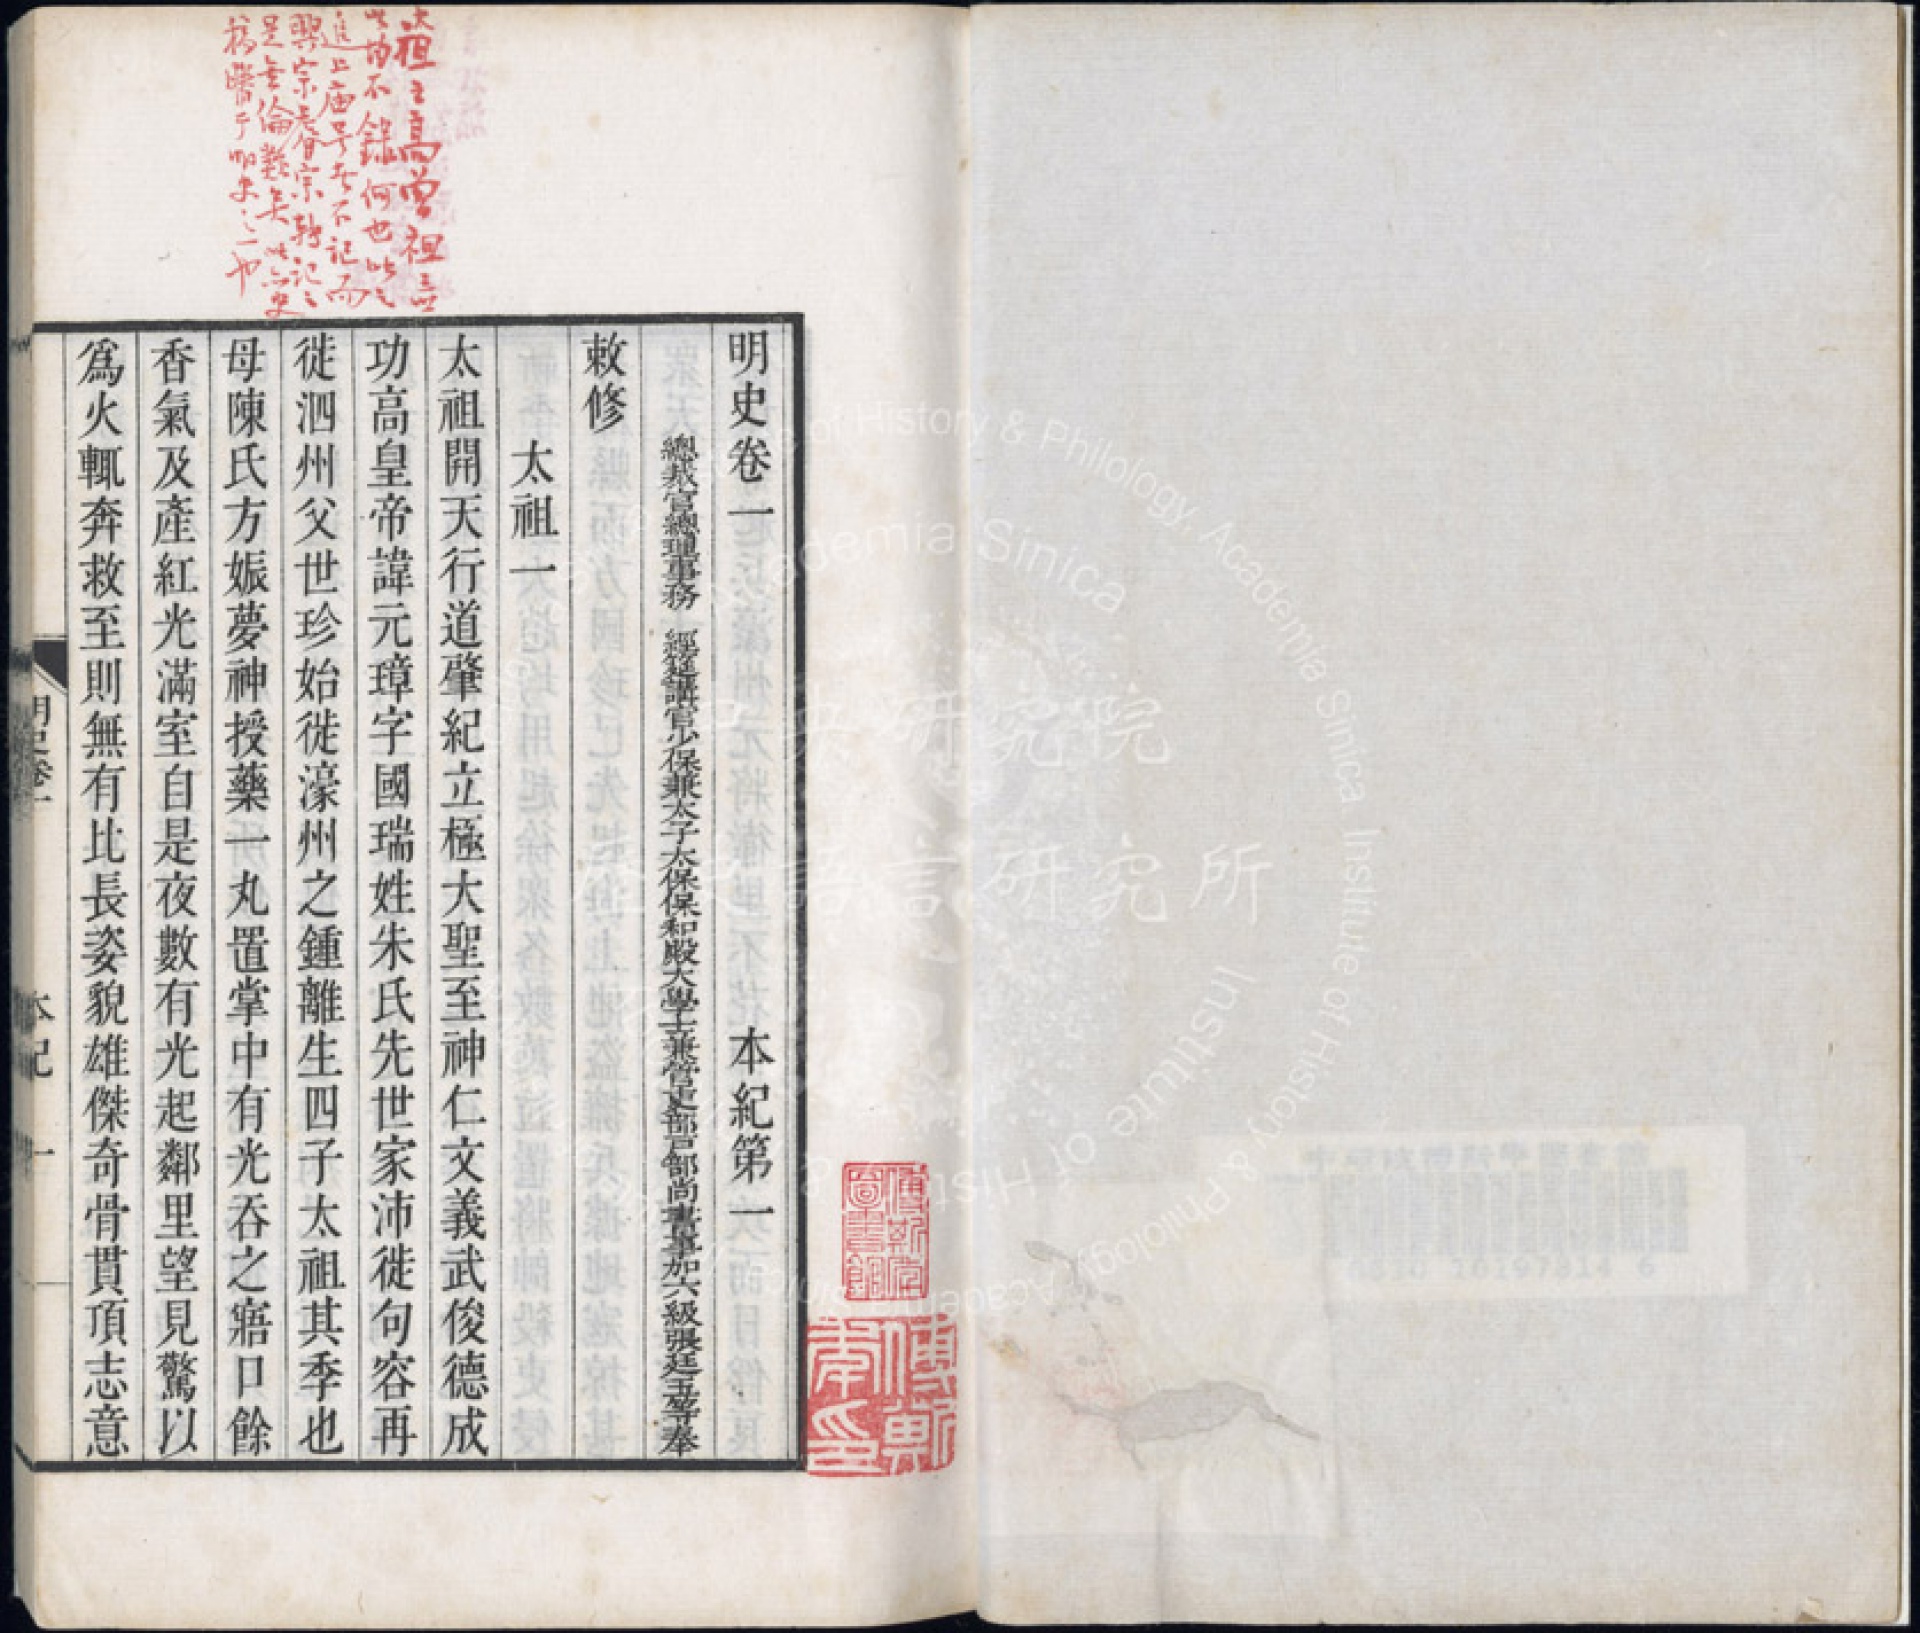 明史卷一　本紀第一
總裁官總理事務　經筵講官少保兼太子太保保和殿大學士兼管吏部戶部尚書事加六級張廷玉等奉
敕修
太祖一
太祖開天行道肇紀立極大聖至神仁文義武俊德成
功高皇帝諱元璋字國瑞姓朱氏先世家沛徙句容再
徙泗州父世珍始徙濠州之鍾離生四子太祖其季也
母陳氏方娠夢神授藥一丸置掌中有光吞之寤口餘
香氣及產紅光滿室自是夜數有光起鄰里望見驚以
為火輒奔救至則無有比長姿貌雄傑奇骨貫頂志意
明史卷一　本紀　一
太祖之高曾祖
此均不錄何也此
進上庙号者不記而
興宗睿宗轉記之
是無倫類矣此亦史
稿勝于明史之一也
傅斯年圖書館
傅斯年印
中央研究院
歷史語言研究所
Institute of History & Philology, Academia Sinica